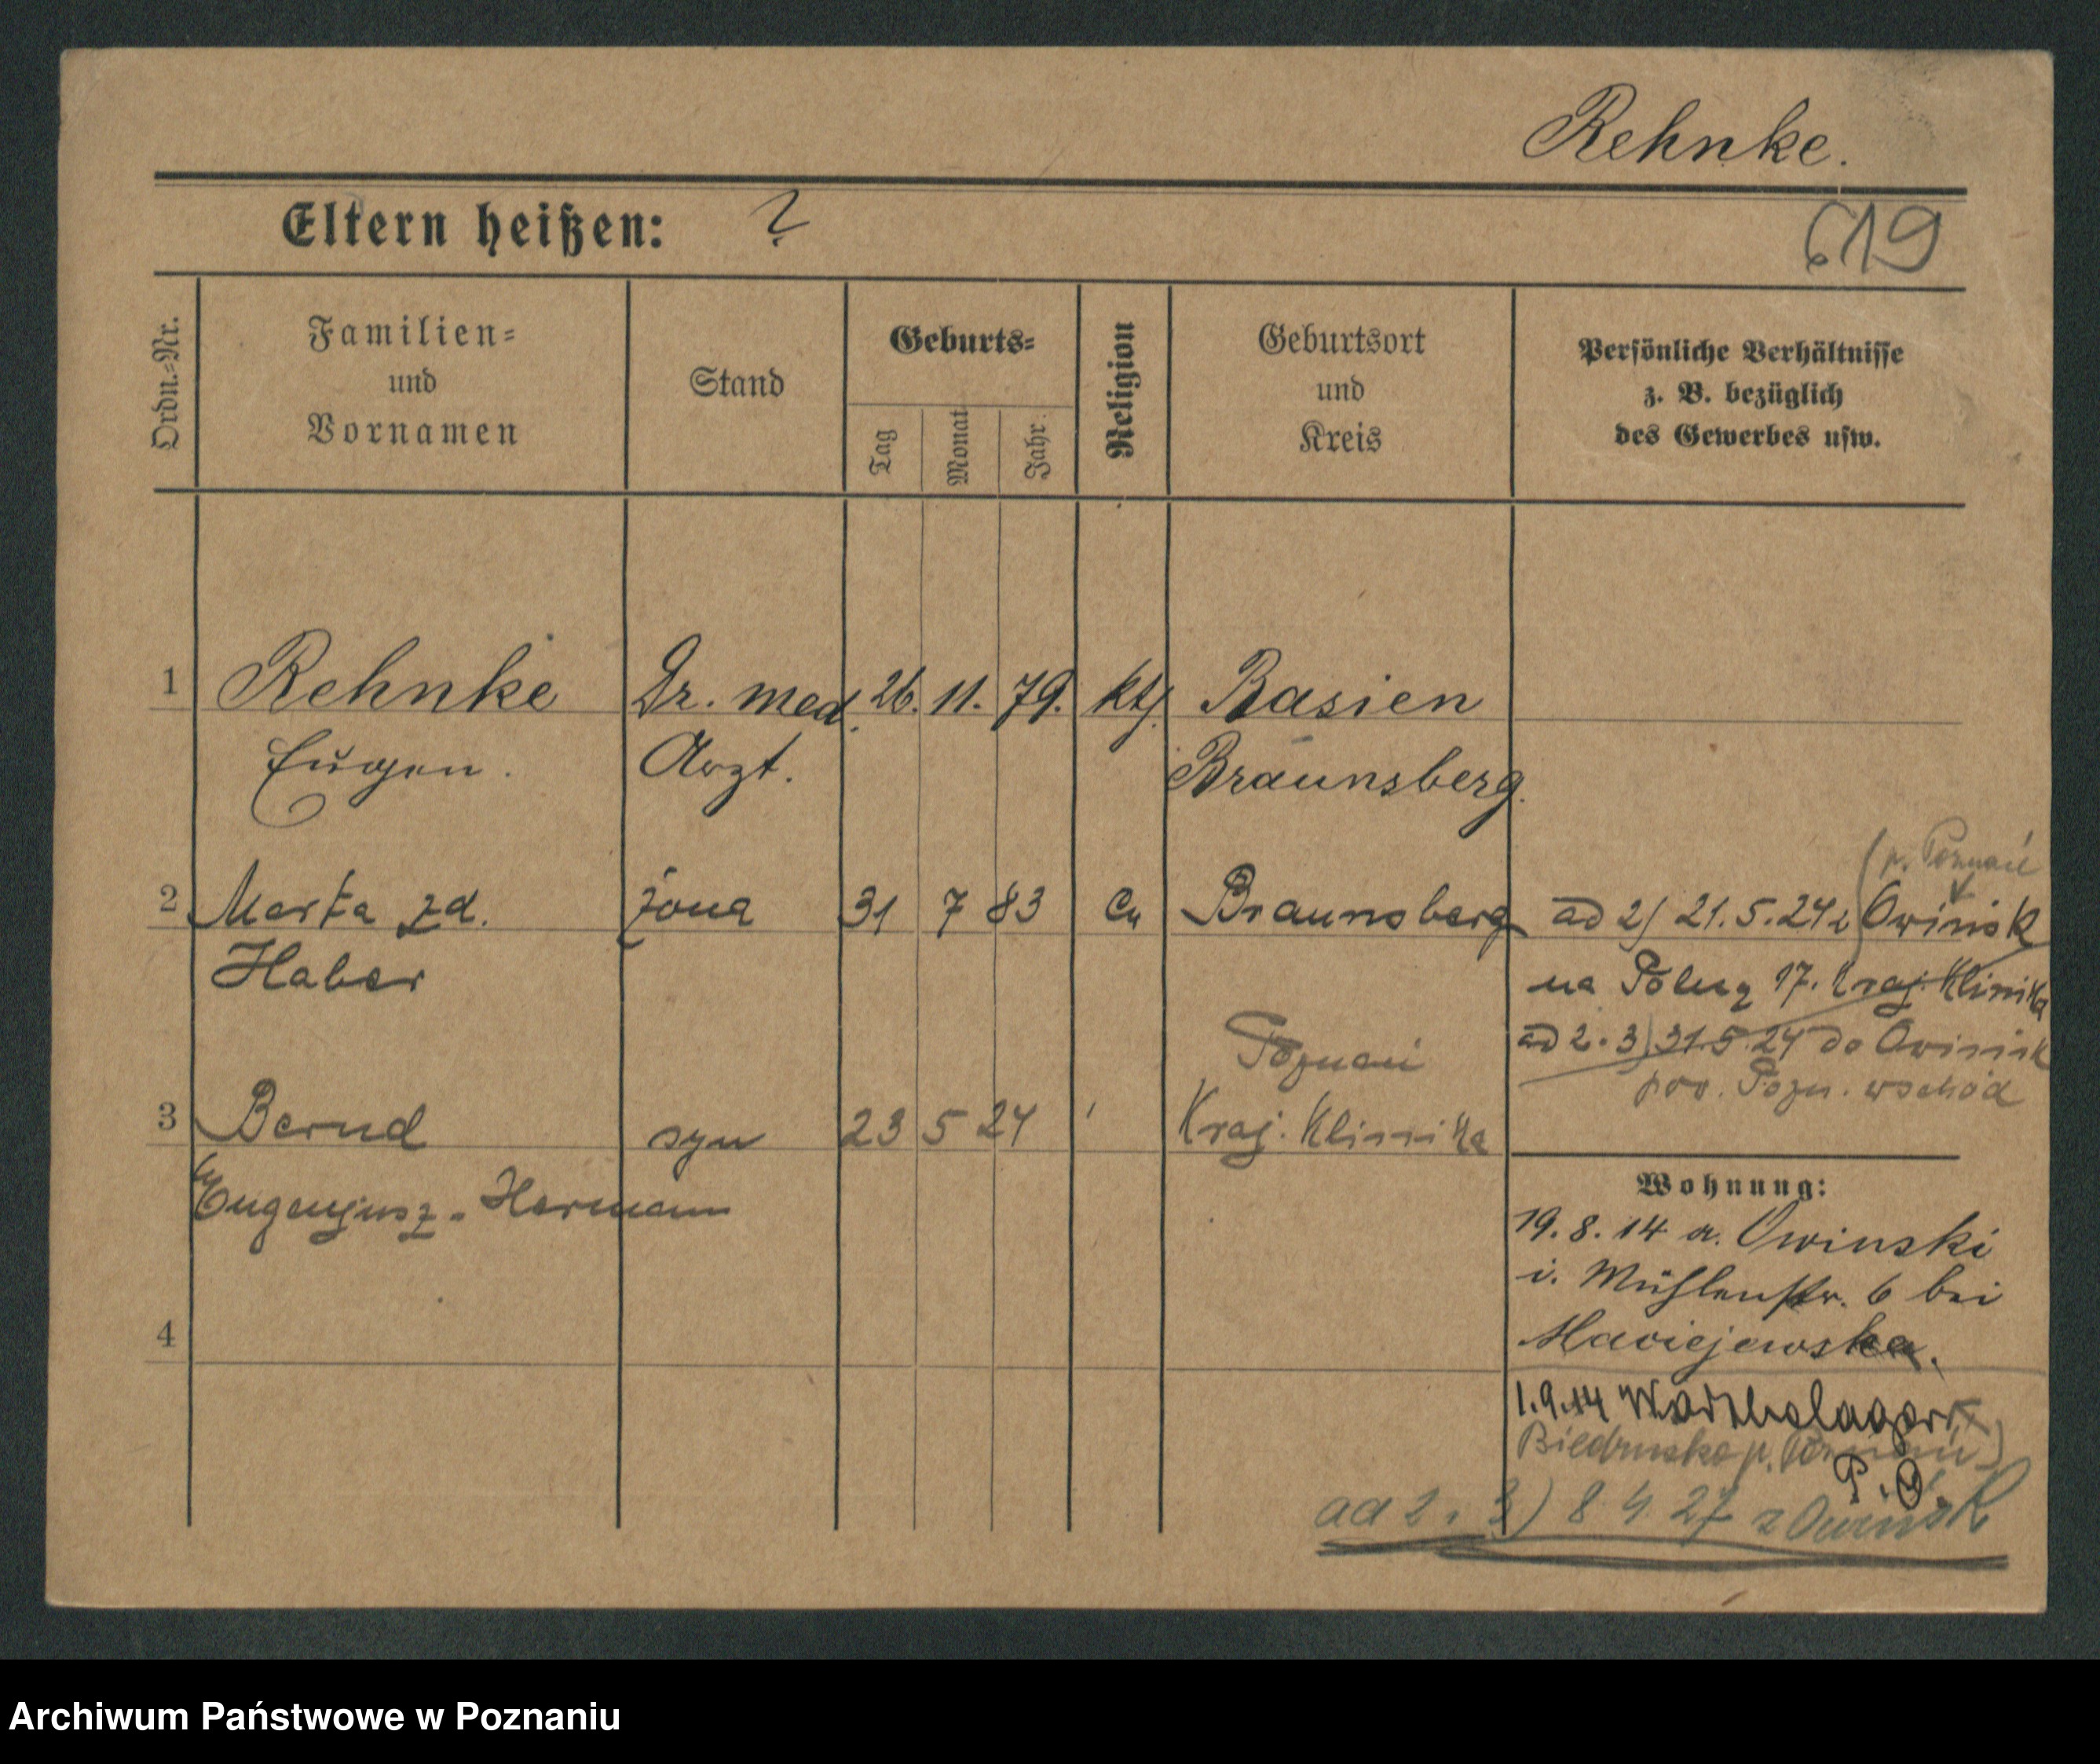 Rehnke.
Eltern heißen: ?
619
Ordn.-Nr.
Familien-
und
Vornamen
Stand
Geburts-
Tag
Monat
Jahr
Religion
Geburtsort
und
Kreis
Persönliche Verhältnisse
z. B. bezüglich
des Gewerbes usw.
1 Rehnke Dr. med. 26. 11. 79. kth. Basien
Eugen. Arzt. Braunsberg.
(p. Poznań
2 Marta zd. żona 31 7 83 Braunsberg ad 2) 21.5.24 z Owińsk
Haber
na Polną 17. Kraj. Klinika
ad 2. 3) 31.5.24 do Owińsk
pow. Pozn. wschód
Poznań
3 Bernd syn 23 5 24 Kraj. Klinika
Eugenjusz-Hermann
Wohnung:
19.8.14 a. Owinski
i. Mühlenstr. 6 bei
Maciejewska.
4
1.9.14
Biedrusko p. Poznań)
P. O.
ad 2. 3) 8 4 27 z Owińsk
Archiwum Państwowe w Poznaniu